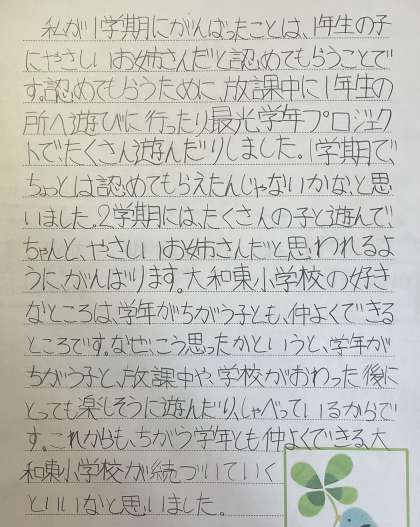 私が1学期にがんばったことは、1年生の子
にやさしいお姉さんだと認めてもらうことで
す。認めてもらうために、放課中に1年生の
所へ遊びに行ったり、最光学年プロジェク
トで、たくさん遊んだりしました。1学期で、
ちょっとは認めてもらえたんじゃないかな、と思
いました。2学期には、たくさんの子と遊んで、
ちゃんと、やさしいお姉さんだと思われるよ
うに、がんばります。大和東小学校の好き
なところは、学年がちがう子とも、仲よくできる
ところです。なぜ、こう思ったかというと、学年が
ちがう子と、放課中や、学校がおわった後に
とっても楽しそうに遊んだり、しゃべっているからで
す。これからも、ちがう学年とも仲よくできる、大
和東小学校が続づいていく
といいなと思いました。